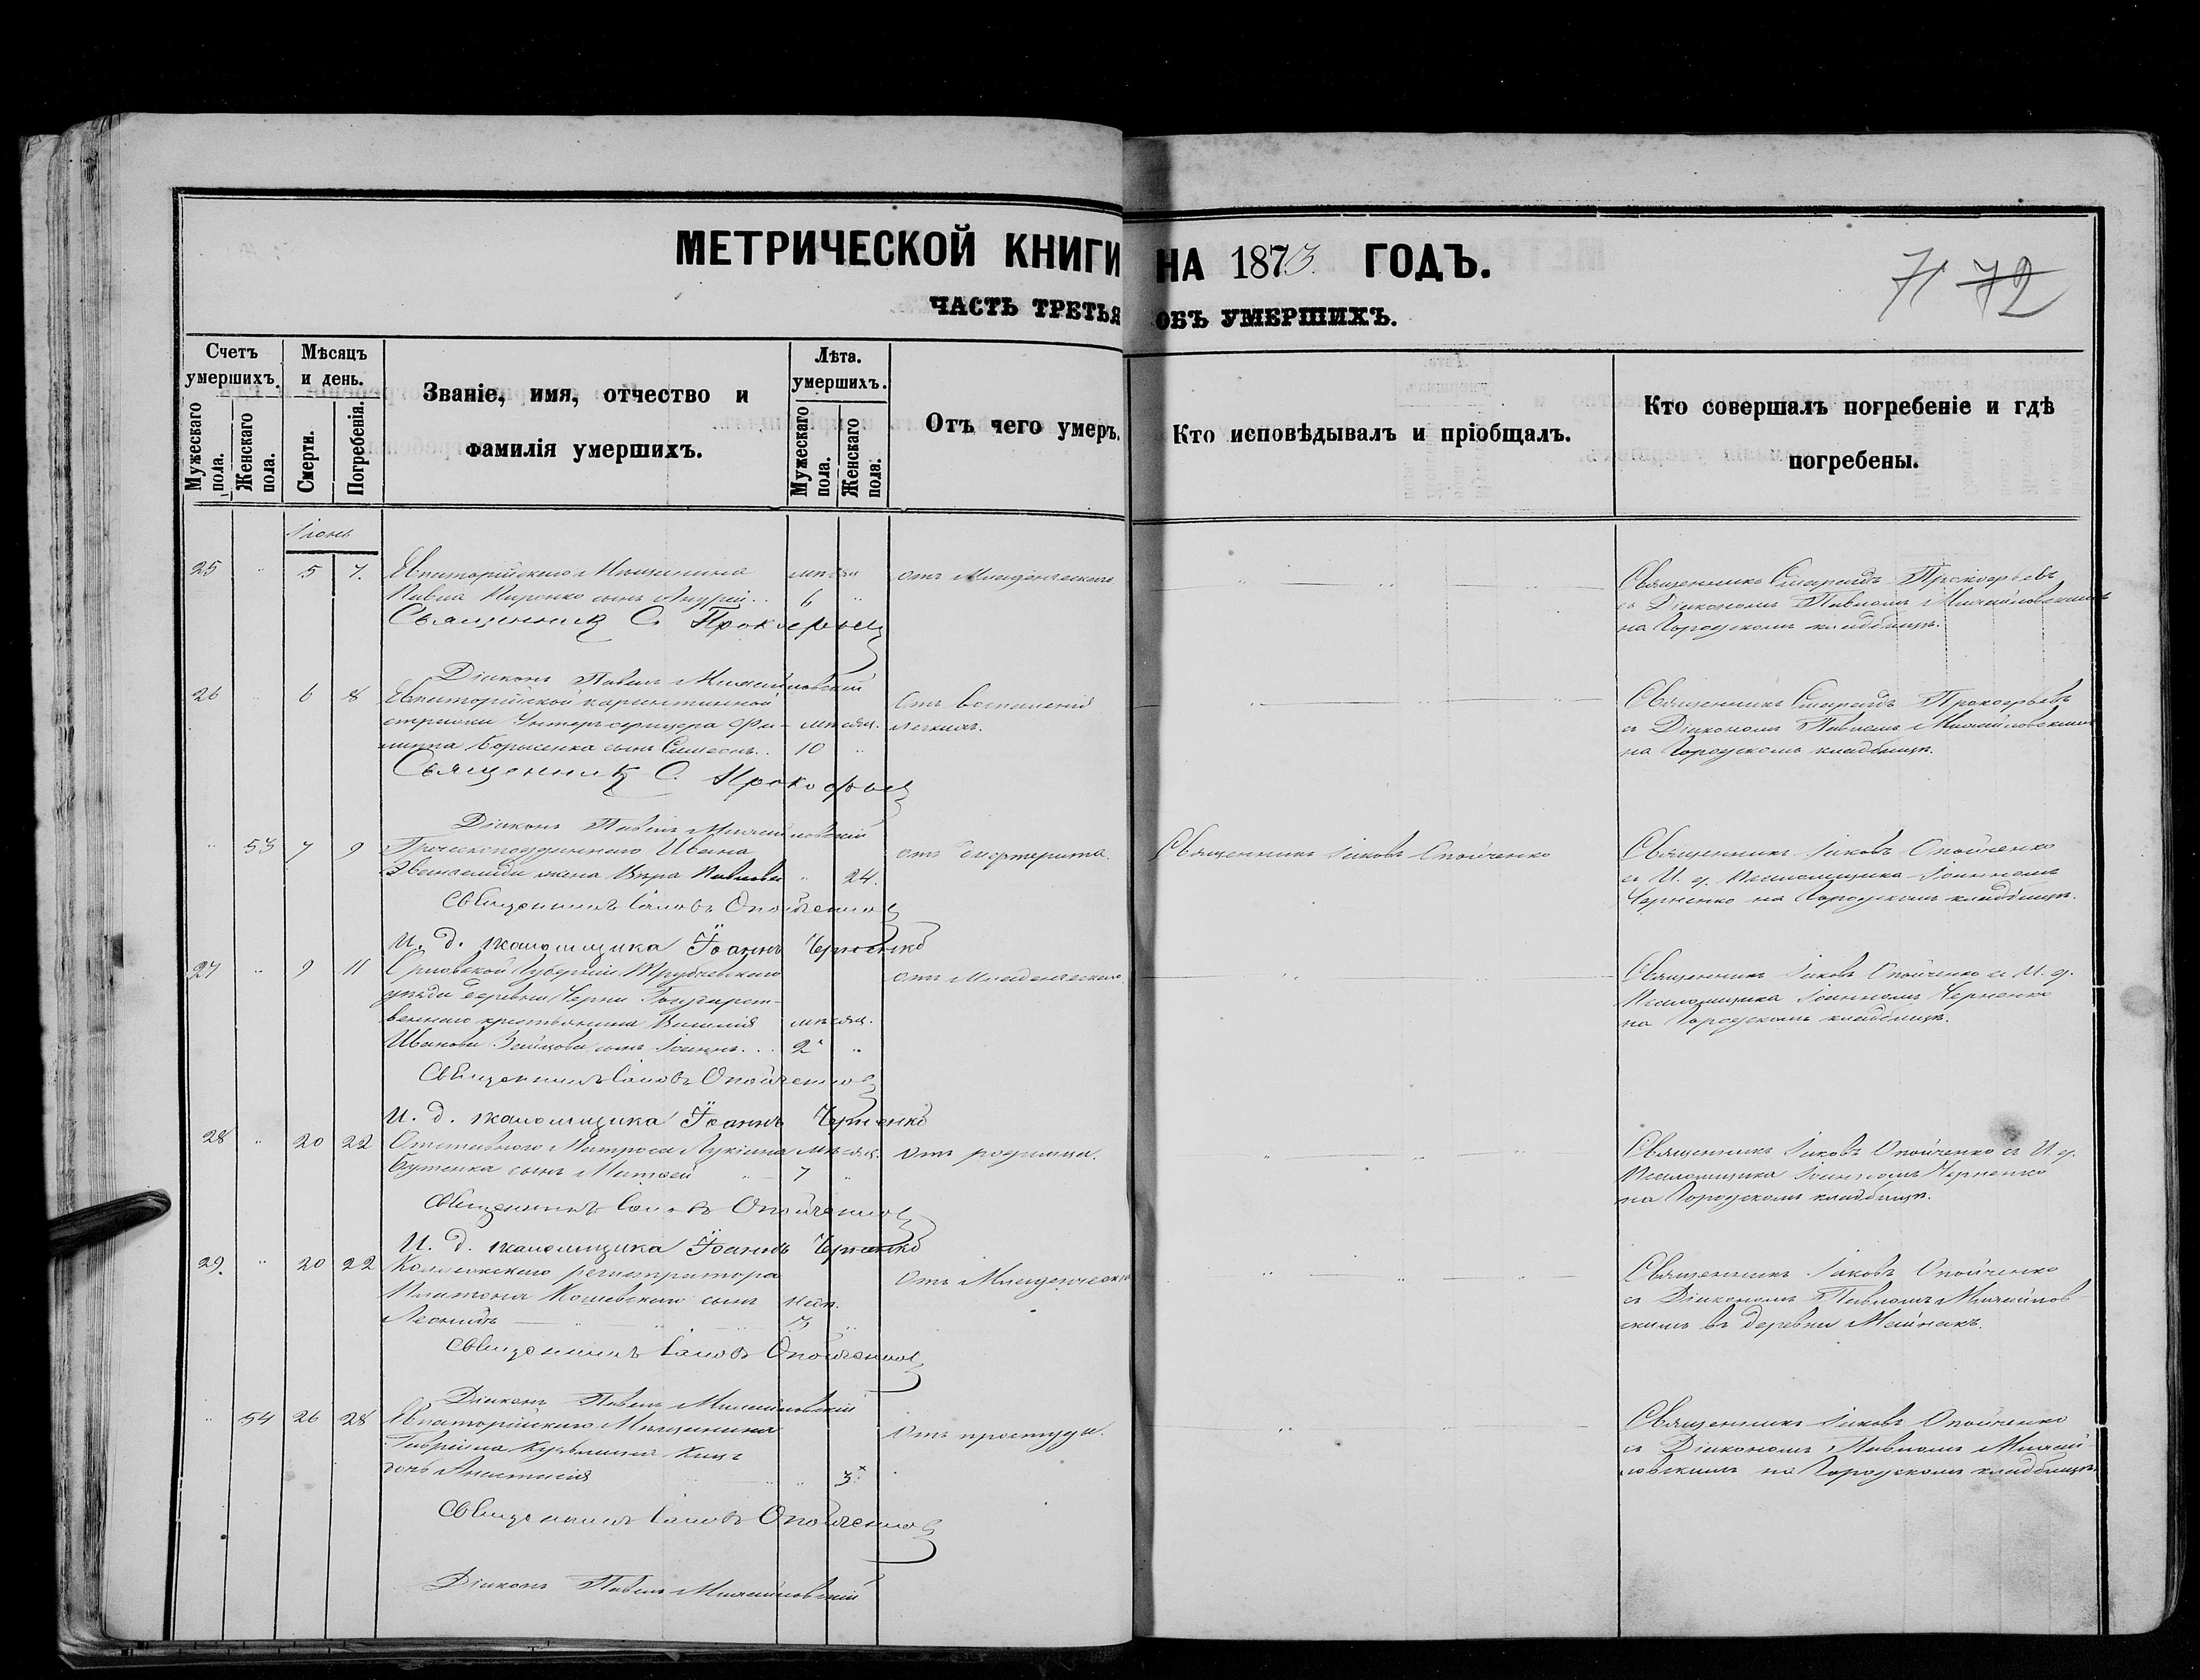 МЕТРИЧЕСКОЙ КНИГИ НА 1873 ГОДЪ.
71 72
ЧАСТЬ ТРЕТЬЯ ОБЪ УМЕРШИХЪ.
Счетъ умершихъ.
Мужескаго пола.
Женскаго пола.
Мѣсяцъ и день.
Смерти.
Погребенія.
Званіе, имя, отчество и фамилія умершихъ.
Лѣта умершихъ.
Мужескаго пола.
Женскаго пола.
Отъ чего умеръ.
Кто исповѣдывалъ и пріобщалъ.
Кто совершалъ погребеніе и гдѣ погребены.
Іюнь
25 " 5 7. Евпаторійскаго Мѣщанина мѣсяц отъ Младенческаго Священникъ Спиридъ Прокофьевъ
Павла сынъ Андрей 6 " съ Діакономъ Павломъ Михайловскимъ
Священникъ С. Прокофьевъ на Городскомъ кладбищѣ.
Діаконъ Павелъ Михайловскій
26 " 6 8 Евпаторійской карантинной Отъ воспаленія Священникъ Спиридъ Прокофьевъ
стражи Унтеръ-офицера Фи- мѣсяц. легкихъ. съ Діакономъ Павломъ Михайловскимъ
липпа Борисенка сынъ Симеонъ 10 " на Городскомъ кладбищѣ.
Священникъ С. Прокофьевъ
Діаконъ Павелъ Михайловскій
" 53 7 9 Греческоподданнаго Ивана отъ дифтерита. Священникъ Іаковъ Опойченко Священникъ Іаковъ Опойченко
жена Вѣра Павлова " 24. съ И. д. Псаломщика Іоанномъ
Священникъ Іаковъ Опойченко Черненко на Городскомъ кладбищѣ.
И. д. псаломщика Іоаннъ Черненко
27 " 9 11 Орловской Губерніи Трубчевскаго отъ Младенческаго. Священникъ Іаковъ Опойченко съ И. д.
уѣзда деревни Черни Государст- Псаломщика Іоанномъ Черненко
веннаго крестьянина Василія мѣсяц. на Городскомъ кладбищѣ.
Иванова Зайцова сынъ Іоаннъ 2 "
Священникъ Іаковъ Опойченко
И. д. псаломщика Іоаннъ Черненко
28 " 20 22 Отставнаго Матроса Лукіана мѣсяц. Отъ родимца. Священникъ Іаковъ Опойченко съ И. д.
Бутенка сынъ Матвей 7 " Псаломщика Іоанномъ Черненко
Священникъ Іаковъ Опойченко на Городскомъ кладбищѣ.
И. д. псаломщика Іоаннъ Черненко
29. " 20 22 Коллежскаго регистратора Отъ Младенческаго Священникъ Іаковъ Опойченко
Платона сынъ съ Діакономъ Павломъ Михайлов-
Леонидъ 3 " скимъ въ деревни Майнакъ.
Священникъ Іаковъ Опойченко
Діаконъ Павелъ Михайловскій
" 54 26 28 Евпаторійскаго Мѣщанина Отъ простуды. Священникъ Іаковъ Опойченко
Гавріила Кузьмина съ Діакономъ Павломъ Михай-
дочь Анастасія " 3 ловскимъ на Городскомъ кладбищѣ.
Священникъ Іаковъ Опойченко
Діаконъ Павелъ Михайловскій